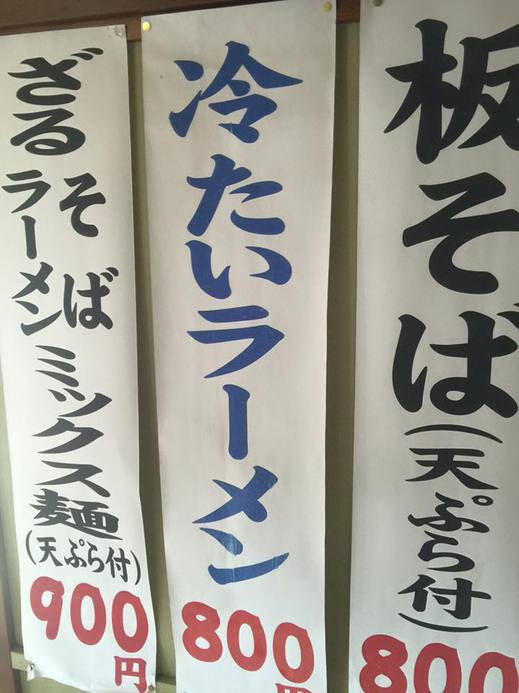 板そば(天ぷら付)
800
冷たいラーメン
800
円
ざる
そば
ラーメン
ミックス麺
(天ぷら付)
900
円